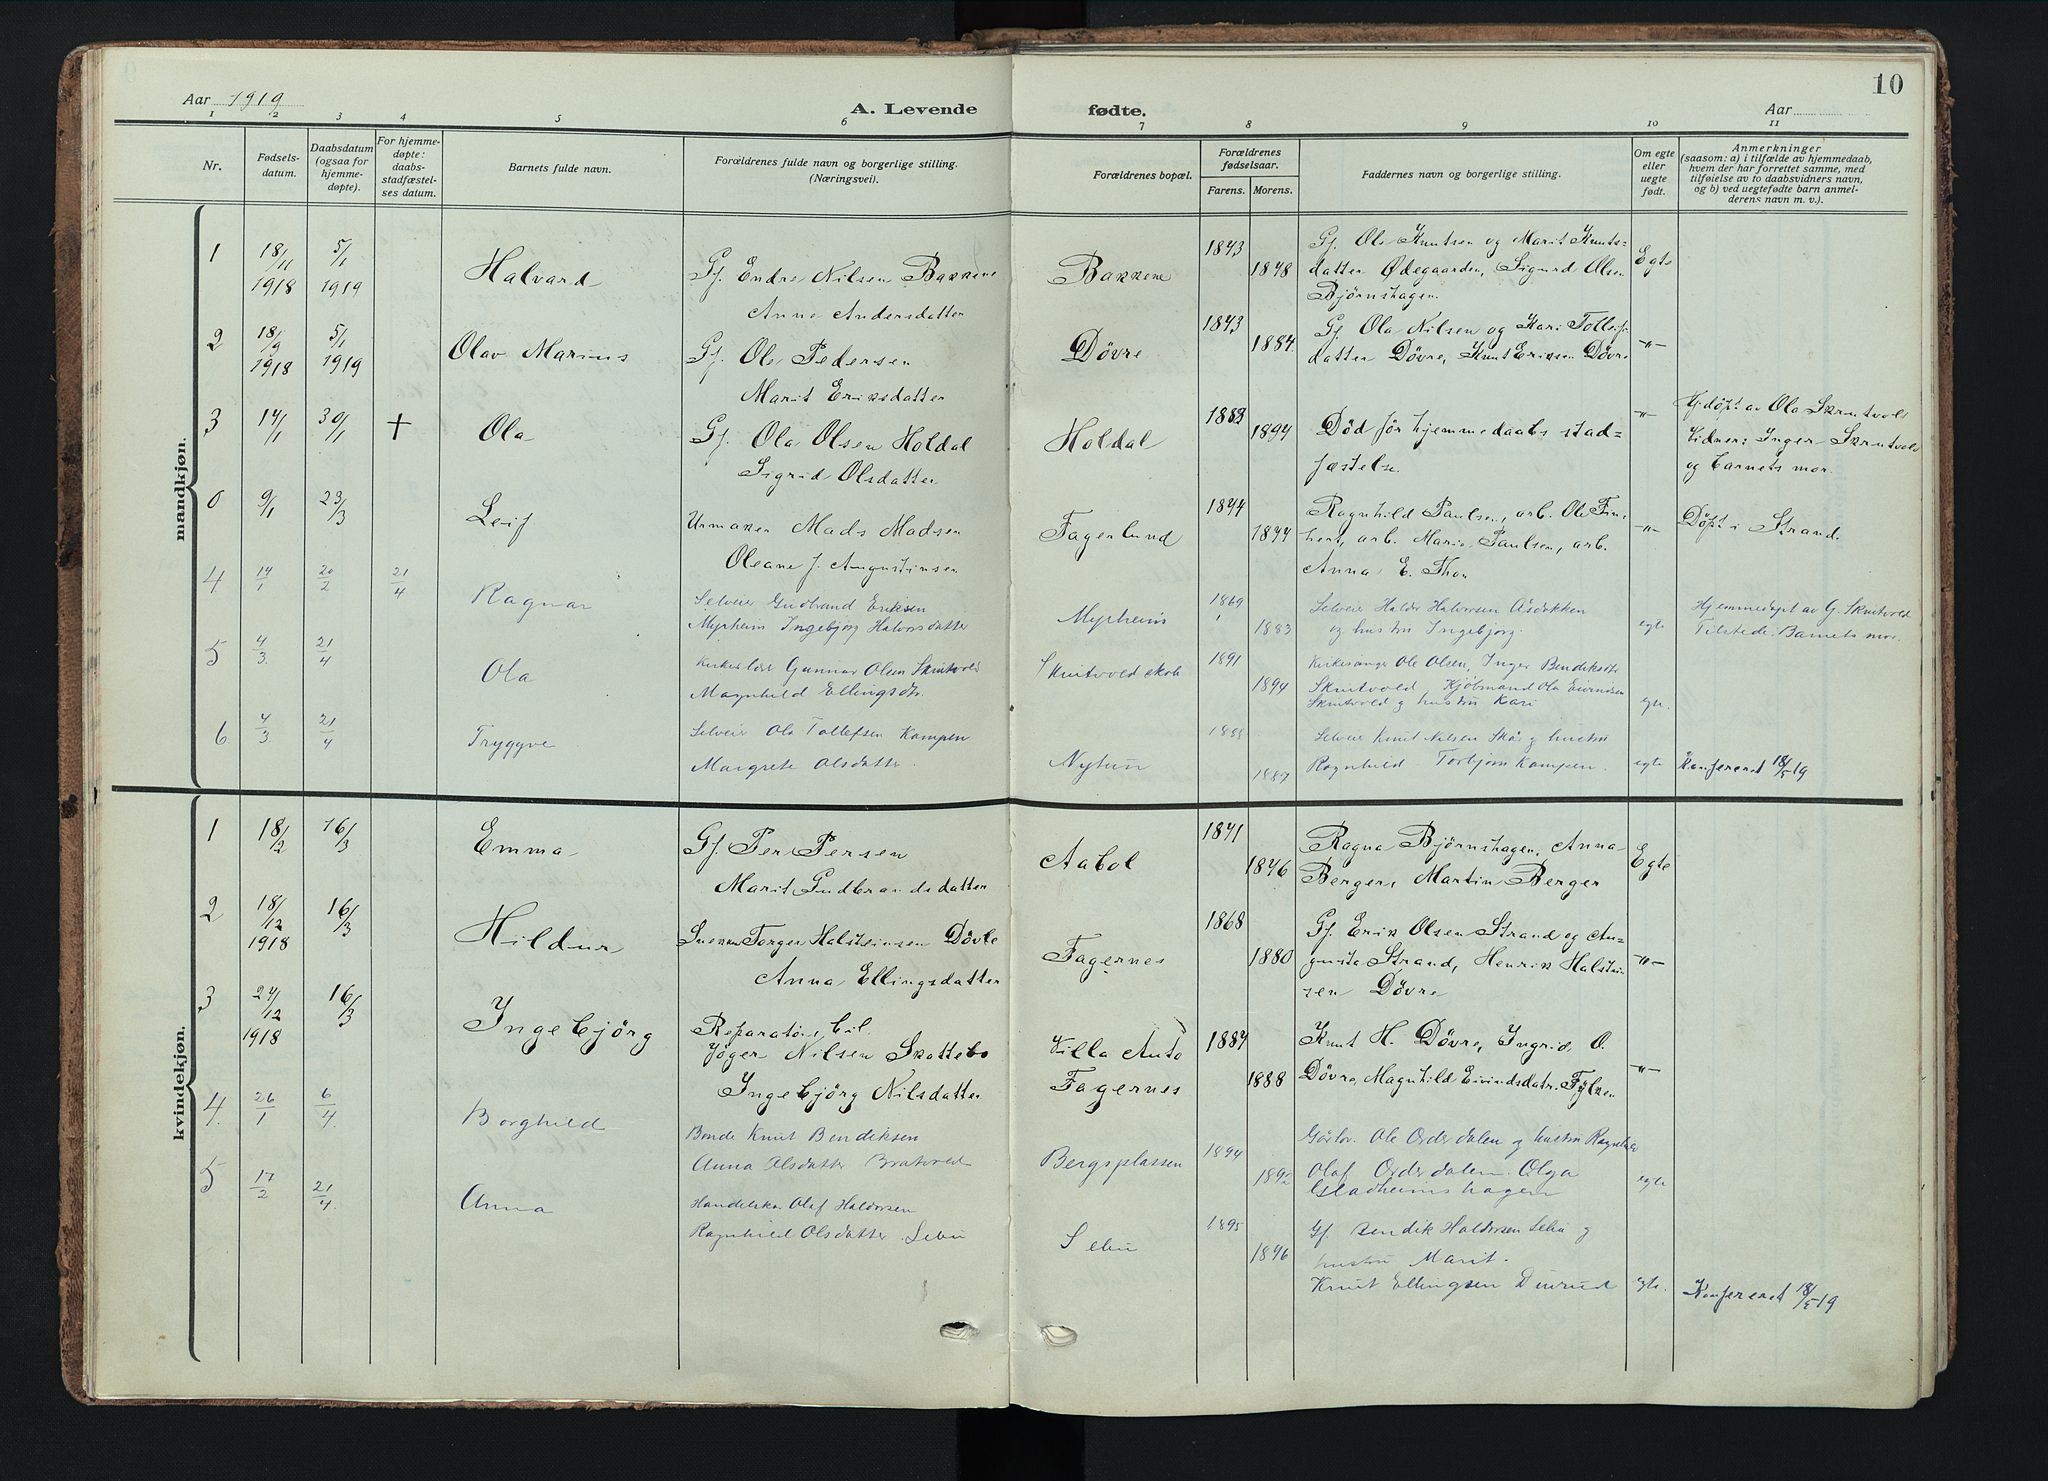 10
Aar 1919
A. Levende fødte.
Aar
1 2 3 4 5 6 7 8 9 10 11
Nr.
Fødsels-
datum.
Daabsdatum
(ogsaa for
hjemme-
døpte).
For hjemme-
døpte:
daabs-
stadfæstel-
ses datum.
Barnets fulde navn.
Forældrenes fulde navn og borgerlige stilling.
(Næringsvei).
Forældrenes bopæl.
Forældrenes
fødselsaar.
Farens. Morens.
Faddernes navn og borgerlige stilling.
Om egte
eller
uegte
født.
Anmerkninger
(saasom: a) i tilfælde av hjemmedaab,
hvem der har forrettet samme, med
tilføielse av to daabsvidners navn,
og b) ved uegtefødte barn anmel-
derens navn m. v.).
mandkjøn.
1 18/11 1918 5/1 1919 Halvard
Gf. Endre Nilsen Bakkene
Anna Andersdatter
Bakkene 1843 1848
Gf. Ole Knutsen og Marit Knuts-
datter Ødegaarden, Sigurd Olsen
Bjørnshagen.
Egte
2 18/9 1918 5/1 1919 Olav Marius
Gf. Ole Pedersen
Marit Eriksdatter
Døvre 1843 1884.
Gf. Ola Nilsen og Kari Tollefs-
datter Døvre, Knut Eriksen Døvre
-"-
3 14/1 30/1 + Ola
Gf. Ola Olsen Holdal
Sigrid Olsdatter
Holdal 1894
Død før hjemmedaabs stad=
fæstelse.
-"-
Hj.døpt av Ola Skrutvold
Vidner: Inger Skrutvold
og barnets mor.
0 9/1 23/3 Leif
Urmaker Mads Madsen
Oleane J. Augustinsen
Fagerlund 1894 1894
Ragnhild Paulsen, arb. Ole Fin-
hert, arb. Marie Paulsen, arb.
Anna E. Thon
-"-
Døpt i Strand.
4 14/1 20/2 21/4 Ragnar
Selveier Gudbrand Eriksen
Myrheim Ingebjørg Halvorsdatter
Myrheim 1869 1883
Selveier Haldor Halvorsen Aasbakken
og hustru Ingebjørg.
egte
Hjemmedøpt av G. Skrutvold
Tilstede: Barnets mor.
5 4/3 21/4 Ola
Kirkesanger Gunnar Olsen Skrutvold
Magnhild Ellingsdtr.
Skrutvold skole 1891 1894
Kirkesanger Ole Olsen, Inger Bendiksdtr
Skrutvold Kjøbmand Ola Eivindsen
Skrutvold og hustru Kari
egte.
6 4/3 21/4 Tryggve
Selveier Ola Tollefsen Kampen
Margrete Olsdatter.
Nytun 1889
Selveier Knut Nilsen Skår og hustru
Ragnhild. Torbjørn Kampen.
egte
Konfereret 18/5 19
kvindekjøn.
1 18/2 16/3 Emma
Gf. Per Persen
Marit Gudbrandsdatter
Aabol 1871 1876
Ragna Bjørnshagen, Anna
Berger, Martin Berger
Egte
2 18/12 1918 16/3 Hildur
Snekker Torger Halsteinsen Døvle
Anna Ellingsdatter
Fagernes 1868 1880
Gf. Erik Olsen Strand og Au-
gusta Strand, Henrik Halstein-
sen Døvre
-"-
3 24/12 1918 16/3 Ingebjørg
Reparatør, bil.
Jøger Nilsen Skattebo
Ingebjørg Nilsdatter
Villa Auto
Fagernes 1884 1888
Knut H. Døvre, Ingrid O.
Døvre, Magnhild Eivindsdatr. Fylken
-"-
4. 26/1 6/4. Borghild
Bonde Knut Bendiksen
Anna Olsdatter Bratvold
Bergsplassen 1894 1892
Gårbr. Ole Ordesdalen og hustru Ragnhild
Olaf Ordesdalen. Olga
Gladheimshagen
egte
5 17/2 21/4 Anna
Handelskar Olaf Haldorsen
Ragnhild Olsdatter. Sebu
Sebu 1895 1896
Gf. Bendik Haldorsen Sebu og
hustru Marit.
Knut Ellingsen
egte.
Konfereret 18/5 19